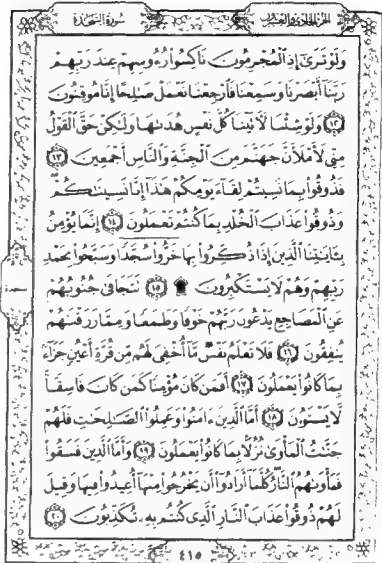 الجزء الحادي والعشرون
سورة السجدة
وَلَوْ تَرَىٰ إِذِ ٱلْمُجْرِمُونَ نَاكِسُوا۟ رُءُوسِهِمْ عِندَ رَبِّهِمْ
رَبَّنَآ أَبْصَرْنَا وَسَمِعْنَا فَٱرْجِعْنَا نَعْمَلْ صَٰلِحًا إِنَّا مُوقِنُونَ
١٢ وَلَوْ شِئْنَا لَءَاتَيْنَا كُلَّ نَفْسٍ هُدَىٰهَا وَلَٰكِنْ حَقَّ ٱلْقَوْلُ
مِنِّى لَأَمْلَأَنَّ جَهَنَّمَ مِنَ ٱلْجِنَّةِ وَٱلنَّاسِ أَجْمَعِينَ ١٣
فَذُوقُوا۟ بِمَا نَسِيتُمْ لِقَآءَ يَوْمِكُمْ هَٰذَآ إِنَّا نَسِينَٰكُمْ
وَذُوقُوا۟ عَذَابَ ٱلْخُلْدِ بِمَا كُنتُمْ تَعْمَلُونَ ١٤ إِنَّمَا يُؤْمِنُ
بِـَٔايَٰتِنَا ٱلَّذِينَ إِذَا ذُكِّرُوا۟ بِهَا خَرُّوا۟ سُجَّدًا وَسَبَّحُوا۟ بِحَمْدِ
رَبِّهِمْ وَهُمْ لَا يَسْتَكْبِرُونَ ۩ ١٥ تَتَجَافَىٰ جُنُوبُهُمْ
سجدة
عَنِ ٱلْمَضَاجِعِ يَدْعُونَ رَبَّهُمْ خَوْفًا وَطَمَعًا وَمِمَّا رَزَقْنَٰهُمْ
يُنفِقُونَ ١٦ فَلَا تَعْلَمُ نَفْسٌ مَّآ أُخْفِىَ لَهُم مِّن قُرَّةِ أَعْيُنٍ جَزَآءًۢ
بِمَا كَانُوا۟ يَعْمَلُونَ ١٧ أَفَمَن كَانَ مُؤْمِنًا كَمَن كَانَ فَاسِقًا
لَّا يَسْتَوُۥنَ ١٨ أَمَّا ٱلَّذِينَ ءَامَنُوا۟ وَعَمِلُوا۟ ٱلصَّٰلِحَٰتِ فَلَهُمْ
جَنَّٰتُ ٱلْمَأْوَىٰ نُزُلًۢا بِمَا كَانُوا۟ يَعْمَلُونَ ١٩ وَأَمَّا ٱلَّذِينَ فَسَقُوا۟
فَمَأْوَىٰهُمُ ٱلنَّارُ كُلَّمَآ أَرَادُوٓا۟ أَن يَخْرُجُوا۟ مِنْهَآ أُعِيدُوا۟ فِيهَا وَقِيلَ
لَهُمْ ذُوقُوا۟ عَذَابَ ٱلنَّارِ ٱلَّذِى كُنتُم بِهِۦ تُكَذِّبُونَ ٢٠
٤١٥